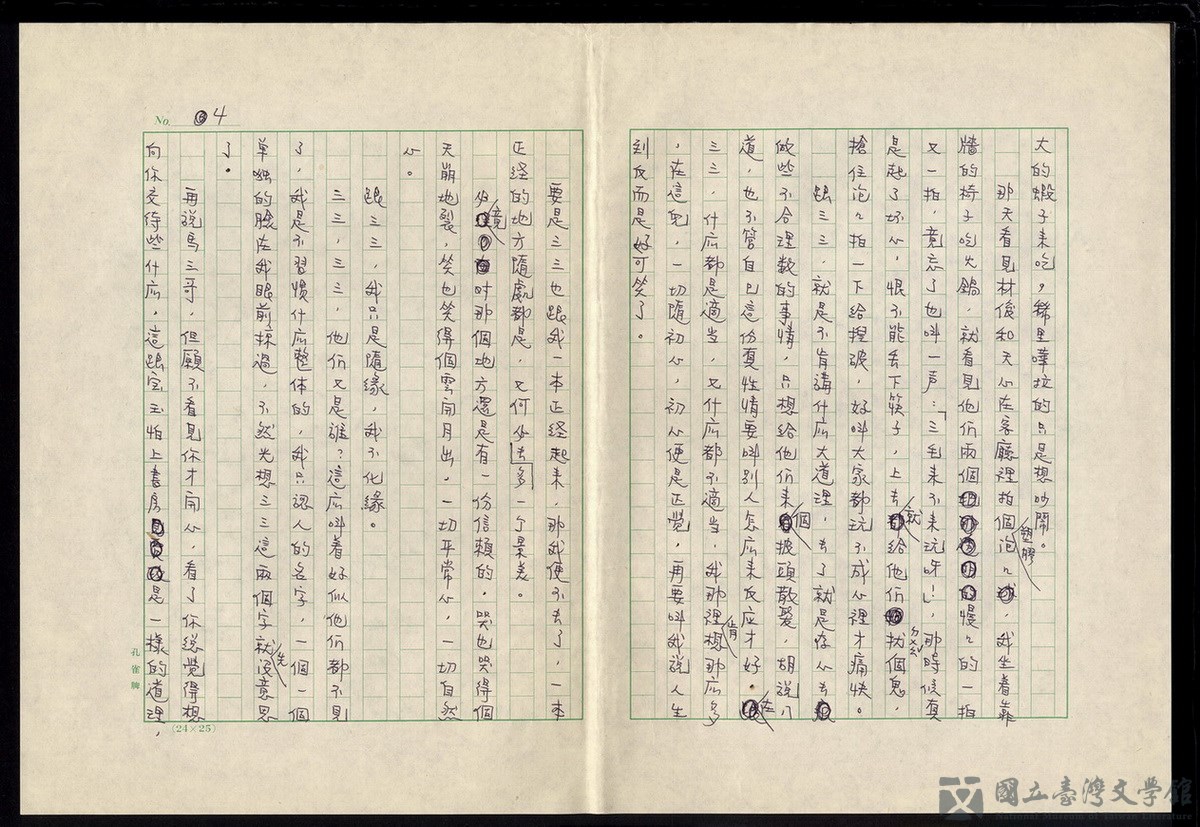 大的蝦子来吃，稀里嘩拉的只是想吵鬧。
那天看見材俊和天心在客廳裡拍個泡ㄟ塑膠，我坐着靠
牆的椅子吃火鍋，就看見他们兩個慢ㄟ的一拍
又一拍，竟忘了也叫一声：「三毛来不来玩呀！」，那時候真
是起了坏心，恨不能丢下筷子，上去就給他们找個鬼，
搶住泡ㄟ拍一下給捏破，好叫大家都玩不成心裡才痛快。
跟三三，就是不肯講什広大道理，去了就是存心去
做些不合理数的事情，只想給他们来個披頭散髮，胡説八
道，也不管自己這份真性情要叫別人怎広来反应才好。在
三三，什広都是適当，又什広都不適当，我那裡肯想那広多
，在這兒，一切隨初心，初心便是正覺，再要叫我説人生
刻反而是好可笑了。
No. 4
要是三三也跟我一本正経起来，那我便不去了，一本
正経的地方隨處都是，又何必去多一个景美。
必竟那個地方還是有一份信賴的，哭也哭得個
天崩地裂，笑也笑得個雲開月出，一切平常心，一切自然
心。
跟三三，我只是隨緣，我不化緣。
三三，三三，他们又是誰？這広叫着好似他们都不見
了，我是不習慣什広整体的，我只認人的名字，一個一個
单独的臉在我眼前掠過，不然光想三三這兩個字就先沒意思
了。
再説馬三哥，但願不看見你才開心，看了你総覺得想
向你交待些什広，這跟宝玉怕上書房是一樣的道理，
孔雀牌
(24×25)
國立臺灣文學館
National Museum of Taiwan Literature